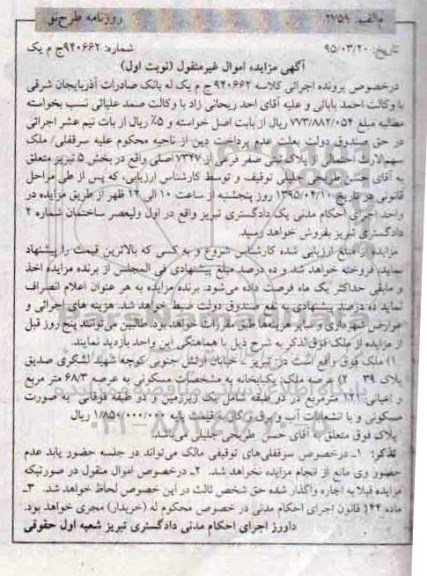 م الف: ۲۷۵۹ روزنامه طرح نو
تاریخ: ۹۵/۰۳/۲۰ شماره: ۹۴۰۶۶۲ج م یک
آگهی مزایده اموال غیرمنقول (نوبت اول)
درخصوص پرونده اجرائی کلاسه ۹۴۰۶۶۲ ج م یک له بانک صادرات آذربایجان شرقی
با وکالت احمد بابائی و علیه آقای احد ریحانی زاد با وکالت صمد علیائی نسب بخواسته
مطالبه مبلغ ۷۷۳/۸۸۲/۰۵۴ ریال از بابت اصل خواسته و ۵٪ ریال از بات نیم عشر اجرائی
در حق صندوق دولت بعلت عدم پرداخت دین از ناحیه محکوم علیه سرقفلی/ ملک
سهم‌الارث احتمالی از پلاک ثبتی صفر فرعی از ۷۳۴۷ اصلی واقع در بخش ۵ تبریز متعلق
به آقای حسن طریحی جلیلی توقیف و توسط کارشناس ارزیابی، که پس از طی مراحل
قانونی در تاریخ ۱۳۹۵/۰۴/۱۰ روز پنجشنبه از ساعت ۱۰ الی ۱۲ ظهر از طریق مزایده در
واحد اجرای احکام مدنی یک دادگستری تبریز واقع در اول ولیعصر ساختمان شماره ۲
دادگستری تبریز بفروش خواهد رسید.
مزایده از مبلغ ارزیابی شده کارشناس شروع و به کسی که بالاترین قیمت را پیشنهاد
نماید، فروخته خواهد شد و ده درصد مبلغ پیشنهادی فی المجلس از برنده مزایده اخذ
و مابقی حداکثر یک ماه فرصت داده می‌شود. برنده مزایده به هر عنوان اعلام انصراف
نماید ده درصد پیشنهادی به نفع صندوق دولت ضبط خواهد شد. هزینه های اجرائی و
عوارض شهرداری و سایر هزینه‌ها طبق مقررات خواهد بود. طالبین می‌توانند پنج روز قبل
از مزایده از ملک فوق‌الذکر به شرح ذیل با هماهنگی این واحد بازدید نمایند.
۱) ملک فوق واقع است در: تبریز – خیابان ارتش جنوبی کوچه شهید لشگری صدیق
پلاک ۳۹ ۲) عرصه ملک: یکبابخانه به مشخصات مسکونی به عرصه ۶۸/۳ متر مربع
و اعیانی ۱۲۱ مترمربع در دو طبقه شامل یک زیرزمین و دو طبقه فوقانی به صورت
مسکونی و با انشعابات آب و برق و گاز به قیمت پایه ۱/۸۵۰/۰۰۰/۰۰۰ ریال
پلاک فوق متعلق به آقای حسن طریحی جلیلی می‌باشد.
تذکر: ۱ـ درخصوص سرقفلی‌های توقیفی مالک می‌تواند در جلسه حضور یابد عدم
حضور وی مانع از انجام مزایده نخواهد شد. ۲ـ درخصوص اموال منقول در صورتیکه
مزایده قبلا به اجاره واگذار شده حق شخص ثالث در این خصوص لحاظ خواهد شد. ۳ـ
ماده ۱۴۴ قانون اجرای احکام مدنی در خصوص محکوم له (خریدار) مجری خواهد بود.
دادورز اجرای احکام مدنی دادگستری تبریز شعبه اول حقوقی